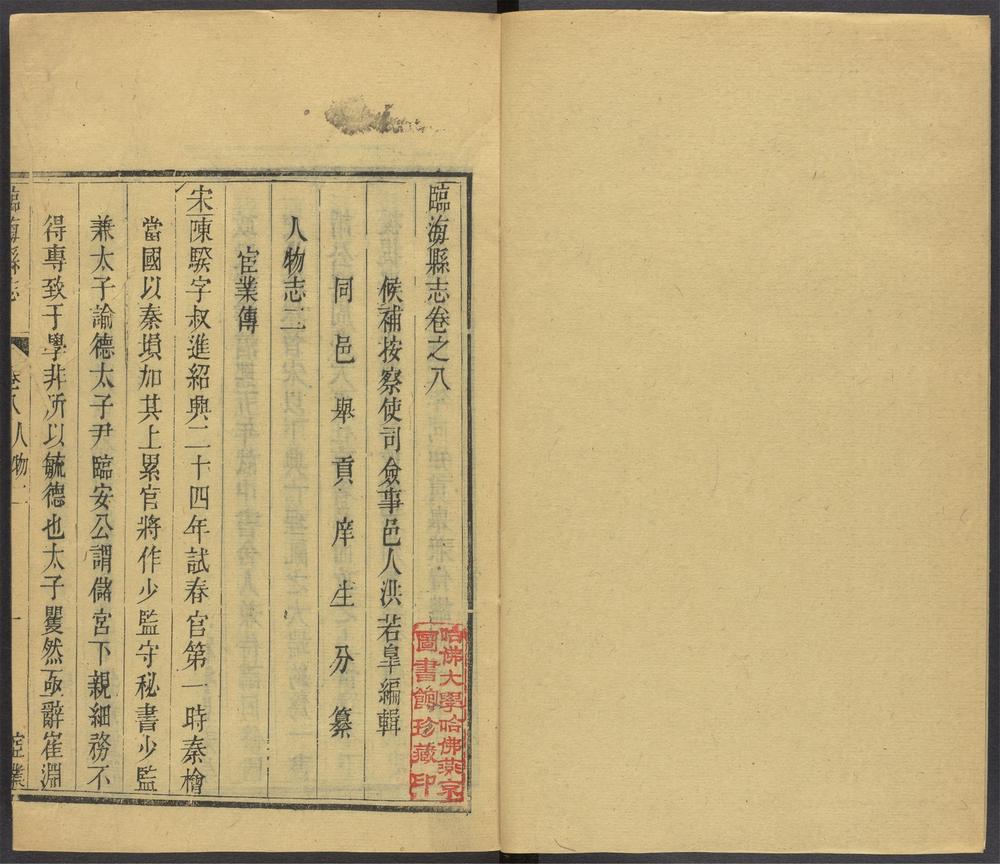 臨海縣志卷之八
候補按察使司僉事邑人洪若臯編輯
同邑舉貢庠生分纂
人物志二
宦業傳
宋陳騤字叔進紹興二十四年試春官第一時秦檜
當國以秦塤加其上累官將作少監守秘書少監
兼太子諭德太子尹臨安公謂儲宮下親細務不
得專致于學非所以毓德也太子矍然亟辭崔淵
臨海縣志
卷八人物二
一
宦業
哈佛大學哈佛燕京
圖書館珍藏印